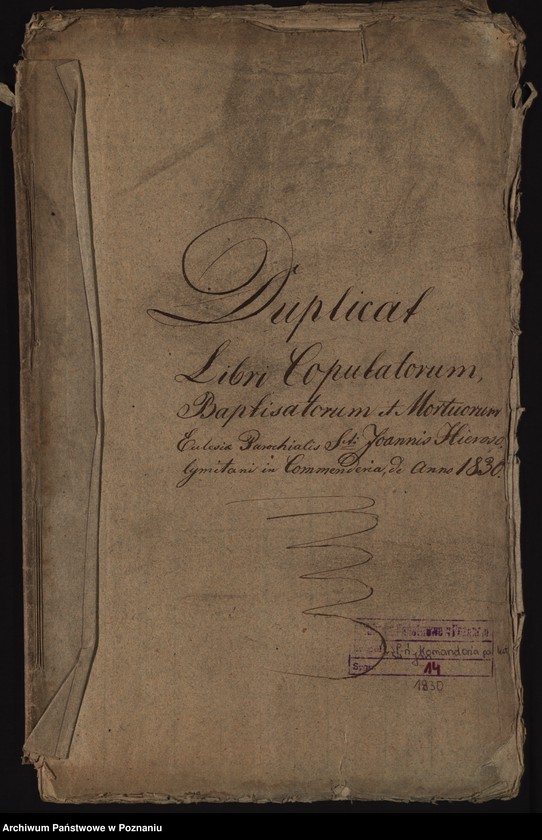 Duplicat
Libri Copulatorum,
Baptisatorum et Mortuorum
Eclesiæ Parochialis Scti Joannis Hieroso,
lymitani in Commenderia, de Anno 1830.
Państwowe w Poznaniu
Komandoria
Sygn. 14
1830
Archiwum Państwowe w Poznaniu